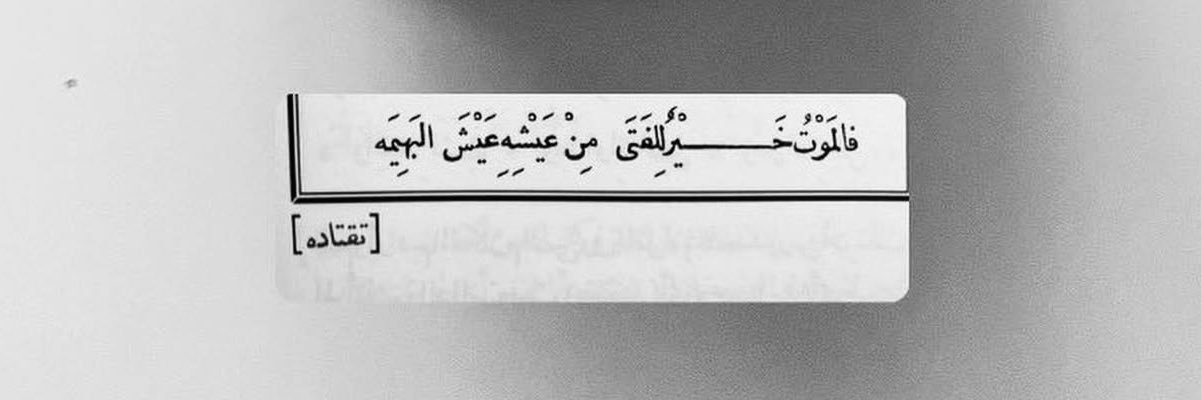 فالمَوْتُ خَـــــيْرٌ لِلفَتَى مِنْ عَيْشِهِ عَيْشَ البَهِيمَه
[تقتاده]